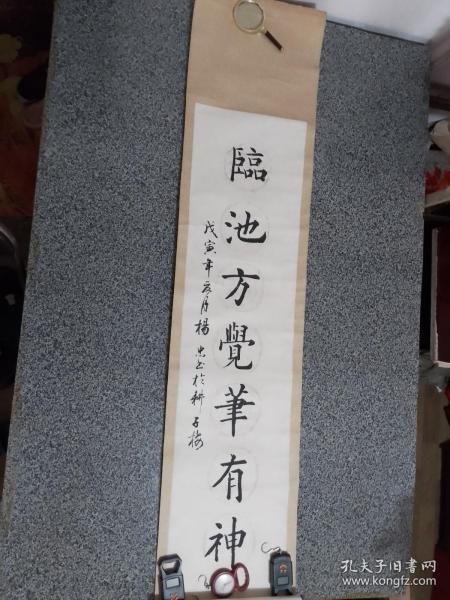 臨池方覺筆有神
戊寅年夏月楊忠書於耕石樓
孔夫子旧书网
www.kongfz.com